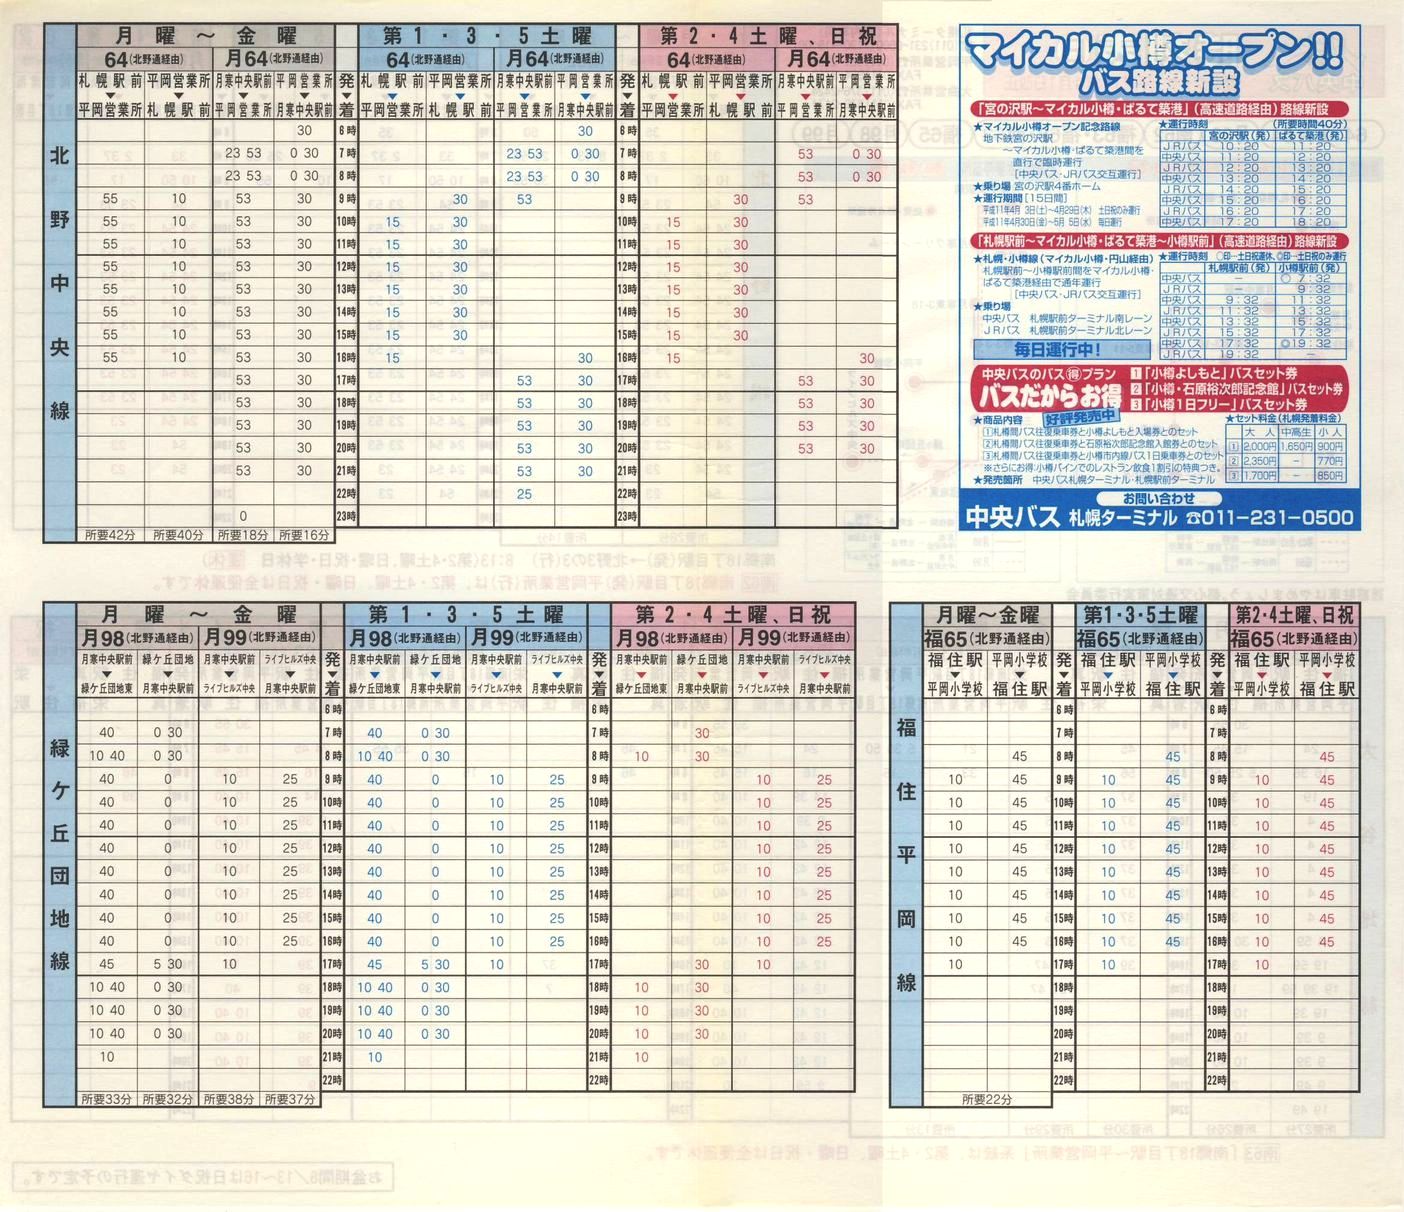 北野中央線
月曜～金曜 第1・3・5土曜 第2・4土曜、日祝
64(北野通経由) 月64(北野通経由) 64(北野通経由) 月64(北野通経由) 64(北野通経由) 月64(北野通経由)
札幌駅前 平岡営業所 月寒中央駅前 平岡営業所 発 札幌駅前 平岡営業所 月寒中央駅前 平岡営業所 発 札幌駅前 平岡営業所 月寒中央駅前 平岡営業所
▼ ▼ ▼ ▼ ▼ ▼ ▼ ▼ ▼ ▼ ▼ ▼ ▼ ▼
平岡営業所 札幌駅前 平岡営業所 月寒中央駅前 着 平岡営業所 札幌駅前 平岡営業所 月寒中央駅前 着 平岡営業所 札幌駅前 平岡営業所 月寒中央駅前
30 6時 30 6時
23 53 0 30 7時 23 53 0 30 7時 53 0 30
23 53 0 30 8時 23 53 0 30 8時 53 0 30
55 10 53 30 9時 30 53 9時 30 53
55 10 53 30 10時 15 30 10時 15 30
55 10 53 30 11時 15 30 11時 15 30
55 10 53 30 12時 15 30 12時 15 30
55 10 53 30 13時 15 30 13時 15 30
55 10 53 30 14時 15 30 14時 15 30
55 10 53 30 15時 15 30 15時 15 30
55 10 53 30 16時 15 30 16時 15 30
53 30 17時 53 30 17時 53 30
53 30 18時 53 30 18時 53 30
53 30 19時 53 30 19時 53 30
53 30 20時 53 30 20時 53 30
53 30 21時 53 30 21時
22時 25 22時
0 23時 23時
所要42分 所要40分 所要18分 所要16分
マイカル小樽オープン!!
バス路線新設
「宮の沢駅～マイカル小樽・ぱるて築港」(高速道路経由)路線新設
★マイカル小樽オープン記念路線
地下鉄宮の沢駅
～マイカル小樽・ぱるて築港間を
直行で臨時運行
[中央バス・JRバス交互運行]
★乗り場 宮の沢駅4番ホーム
★運行期間[15日間]
平成11年4月 3日(土)～4月29日(木) 土日祝のみ運行
平成11年4月30日(金)～5月 5日(水) 毎日運行
★運行時刻 (所要時間40分)
宮の沢駅(発) ぱるて築港(発)
JRバス 10:20 11:20
中央バス 11:20 12:20
JRバス 12:20 13:20
中央バス 13:20 14:20
JRバス 14:20 15:20
中央バス 15:20 16:20
JRバス 16:20 17:20
中央バス 17:20 18:20
「札幌駅前～マイカル小樽・ぱるて築港～小樽駅前」(高速道路経由)路線新設
★札幌・小樽線(マイカル小樽・円山経由)
札幌駅前～小樽駅前間をマイカル小樽・
ぱるて築港経由で通年運行
[中央バス・JRバス交互運行]
★乗り場
中央バス 札幌駅前ターミナル南レーン
JRバス 札幌駅前ターミナル北レーン
毎日運行中!
★運行時刻 ○印…土日祝運休、◎印…土日祝のみ運行
札幌駅前(発) 小樽駅前(発)
中央バス － ○ 7:32
JRバス － 9:32
中央バス 9:32 11:32
JRバス 11:32 13:32
中央バス 13:32 15:32
JRバス 15:32 17:32
中央バス 17:32 ◎19:32
JRバス 19:32 －
中央バスのバス得プラン
バスだからお得
好評発売中
1「小樽よしもと」バスセット券
2「小樽・石原裕次郎記念館」バスセット券
3「小樽1日フリー」バスセット券
★商品内容
1札樽間バス往復乗車券と小樽よしもと入場券とのセット
2札樽間バス往復乗車券と石原裕次郎記念館入館券とのセット
3札樽間バス往復乗車券と小樽市内線バス1日乗車券とのセット
※さらにお得:小樽バインでのレストラン飲食1割引の特典つき。
★発売箇所 中央バス札幌ターミナル・札幌駅前ターミナル
★セット料金(札幌発着料金)
大人 中高生 小人
1 2,000円 1,650円 900円
2 2,350円 － 770円
3 1,700円 － 850円
お問い合わせ
中央バス 札幌ターミナル ☎011-231-0500
緑ケ丘団地線
月曜～金曜 第1・3・5土曜 第2・4土曜、日祝
月98(北野通経由) 月99(北野通経由) 月98(北野通経由) 月99(北野通経由) 月98(北野通経由) 月99(北野通経由)
月寒中央駅前 緑ケ丘団地 月寒中央駅前 ライブヒルズ中央 発 月寒中央駅前 緑ケ丘団地 月寒中央駅前 ライブヒルズ中央 発 月寒中央駅前 緑ケ丘団地 月寒中央駅前 ライブヒルズ中央
▼ ▼ ▼ ▼ ▼ ▼ ▼ ▼ ▼ ▼ ▼ ▼ ▼ ▼
緑ケ丘団地東 月寒中央駅前 ライブヒルズ中央 月寒中央駅前 着 緑ケ丘団地東 月寒中央駅前 ライブヒルズ中央 月寒中央駅前 着 緑ケ丘団地東 月寒中央駅前 ライブヒルズ中央 月寒中央駅前
6時 6時
40 0 30 7時 40 0 30 7時 30
10 40 0 30 8時 10 40 0 30 8時 10 30
40 0 10 25 9時 40 0 10 25 9時 10 25
40 0 10 25 10時 40 0 10 25 10時 10 25
40 0 10 25 11時 40 0 10 25 11時 10 25
40 0 10 25 12時 40 0 10 25 12時 10 25
40 0 10 25 13時 40 0 10 25 13時 10 25
40 0 10 25 14時 40 0 10 25 14時 10 25
40 0 10 25 15時 40 0 10 25 15時 10 25
40 0 10 25 16時 40 0 10 25 16時 10 25
45 5 30 10 17時 45 5 30 10 17時 30 10
10 40 0 30 18時 10 40 0 30 18時 10 30
10 40 0 30 19時 10 40 0 30 19時 10 30
10 40 0 30 20時 10 40 0 30 20時 10 30
10 21時 10 21時 10
22時 22時
所要33分 所要32分 所要38分 所要37分
福住平岡線
月曜～金曜 第1・3・5土曜 第2・4土曜、日祝
福65(北野通経由) 福65(北野通経由) 福65(北野通経由)
福住駅 平岡小学校 発 福住駅 平岡小学校 発 福住駅 平岡小学校
▼ ▼ ▼ ▼ ▼ ▼ ▼ ▼
平岡小学校 福住駅 着 平岡小学校 福住駅 着 平岡小学校 福住駅
6時 6時
7時 7時
45 8時 45 8時 45
10 45 9時 10 45 9時 10 45
10 45 10時 10 45 10時 10 45
10 45 11時 10 45 11時 10 45
10 45 12時 10 45 12時 10 45
10 45 13時 10 45 13時 10 45
10 45 14時 10 45 14時 10 45
10 45 15時 10 45 15時 10 45
10 45 16時 10 45 16時 10 45
10 17時 10 17時 10
18時 18時
19時 19時
20時 20時
21時 21時
22時 22時
所要22分